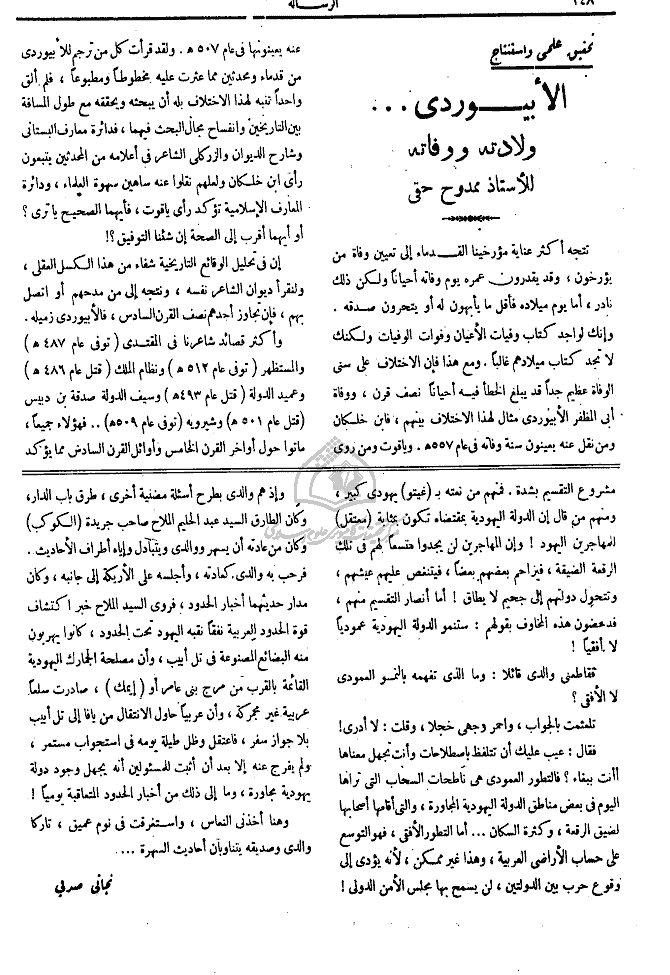 ١٤٨
الرسالة
تحقيق علمى واستنتاج
الأبيوردى . . .
ولادته ووفاته
للأستاذ ممدوح حقى
تتجه أكثر عناية مؤرخينا القدماء إلى تعيين وفاة من
يؤرخون ، وقد يقدرون عمره يوم وفاته أحياناً ولكن ذلك
نادر ، أما يوم ميلاده فأقل ما يأبهون له أو يتحرون صدقه .
وإنك لواجد كتاب وفيات الأعيان وفوات الوفيات ولكنك
لا تجد كتاب ميلادهم غالباً . ومع هذا فإن الاختلاف على سنى
الوفاة عظيم جداً قد يبلغ الخطأ فيه أحياناً نصف قرن ، ووفاة
أبى المظفر الأبيوردى مثال لهذا الاختلاف بينهم ، فابن خلكان
ومن نقل عنه يعينون سنة وفاته فى عام ٥٥٧ﻫ . وياقوت ومن روى
عنه يعينونها فى عام ٥٠٧ ﻫ . ولقد قرأت كل من ترجم للأبيوردى
من قدماء ومحدثين مما عثرت عليه مخطوطاً ومطبوعاً ، فلم ألق
واحداً تنبه لهذا الاختلاف بله أن يبحثه ويحققه مع طول المسافة
بين التاريخين وانفساح مجال البحث فيهما ، فدائرة معارف البستانى
وشارح الديوان والزركلى الشاعر فى أعلامه من المحدثين يتبعون
رأى ابن خلكان ولعلهم نقلوا عنه ساهين سهوة العلماء ، ودائرة
المعارف الإسلامية تؤكد رأى ياقوت ، فأيهما الصحيح يا ترى ؟
أو أيهما أقرب إلى الصحة إن شئنا التوفيق ؟!
إن فى تحليل الوقائع التاريخية شفاء من هذا الكسل العقلى ،
ولنقرأ ديوان الشاعر نفسه ، ونتجه إلى من مدحهم أو اتصل
بهم ، فإن تجاوز أحدهم نصف القرن السادس ، فالأبيوردى زميله .
وأكثر قصائد شاعرنا فى المقتدى ( توفى عام ٤٨٧ ﻫ )
والمستظهر ( توفى عام ٥١٢ ﻫ ) ونظام الملك ( قتل عام ٤٨٦ ﻫ )
وعميد الدولة ( قتل عام ٤٩٣ﻫ ) وسيف الدولة صدقة بن دبيس
(قتل عام ٥٠١ ﻫ) وشيرويه (توفى عام ٥٠٩ﻫ) .. فهؤلاء جميعاً ،
ماتوا حول أواخر القرن الخامس وأوائل القرن السادس مما يؤكد
مشروع التقسيم بشدة . فمنهم من نعته بـ (غيتو) يهودى كبير ،
ومنهم من قال إن الدولة اليهودية بمقتضاه تكون بمثابة (معتقل)
للمهاجرين اليهود ! وإن المهاجرين لن يجدوا متسعاً لهم فى تلك
الرقعة الضيقة ، فيزاحم بعضهم بعضاً ، فيتنغص عليهم عيشهم ،
وتتحول دولتهم إلى جحيم لا يطاق ! أما أنصار التقسيم منهم ،
فدحضون هذه المخاوف بقولهم : ستنمو الدولة اليهودية عمودياً
لا أفقياً !
فقاطعنى والدى قائلا : وما الذى تفهمه بالنمو العمودى
لا الأفقى ؟
تلعثمت بالجواب ، واحمر وجهى خجلا ، وقلت : لا أدرى!
فقال : عيب عليك أن تتلفظ بإصطلاحات وأنت تجهل معناها
أأنت ببغاء ؟ فالتطور العمودى هى ناطحات السحاب التى تراها
اليوم فى بعض مناطق الدولة اليهودية المجاورة ، والتى أقامها أصحابها
لضيق الرقعة ، وكثرة السكان ... أما التطور الأفقى ، فهو التوسع
على حساب الأراضى العربية ، وهذا غير ممكن ، لأنه يؤدى إلى
وقوع حرب بين الدولتين ، لن يسمح بها مجلس الأمن الدولى !
وإذ هم والدى بطرح أسئلة مضنية أخرى ، طرق باب الدار،
وكان الطارق السيد عبد الحليم الملاح صاحب جريدة (الكوكب)
وكان من عادته أن يسهر ووالدى ويتبادل وإياه أطراف الأحاديث .
فرحب به والدى كعادته ، وأجلسه على الأريكة إلى جانبه ، وكان
مدار حديثهما أخبار الحدود ، فروى السيد الملاح خبر اكتشاف
قوة الحدود العربية نفقا نقبه اليهود تحت الحدود ، كانوا يهربون
منه البضائع المصنوعة فى تل أبيب ، وأن مصلحة الجمارك اليهودية
القائمة بالقرب من مرج بنى عامر أو ( إيمك ) ، صادرت سلعاً
عربية غير مجمركة ، وأن عربياً حاول الانتقال من يافا إلى تل أبيب
بلا جواز سفر ، فاعتقل وظل طيلة يومه فى استجواب مستمر ،
ولم يفرج عنه إلا بعد أن أثبت للمسئولين أنه يجهل وجود دولة
يهودية مجاورة ، وما إلى ذلك من أخبار الحدود المتعاقبة يومياً !
وهنا أخذنى النعاس ، واستغرقت فى نوم عميق ، تاركا
والدى وصديقه يتناوبان أحاديث السهرة ...
نجاتى صدقى